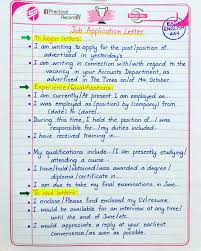 Practical
Record
Job Application Letter
To begin letters:
• I am writing to apply for the post/position of...
advertised in yesterday's....
• I am writing in connection with/with regard to the
vacancy in your Accounts Department, as
advertised in The Times on/of Ms. October
Experience/Qualifications:
• I am currently/At present I am employed as...
• I was employed as (position) by (company) from
(date) to (date)....
• During this time, I held the position of... I was
responsible for.../my duties included...
• I have received training in...
• My qualifications include.../I am presently studying/
attending a course...
• I have/hold/obtained/was awarded a degree/
diploma/certificate...
• I am due to take my final examinations in June...
To end letters:
• I enclose/Please find enclosed my CV/resume
• I would be available for an interview at any time/
until the end of June/etc.
• I would appreciate a reply at your earliest
convenience/as soon as possible.